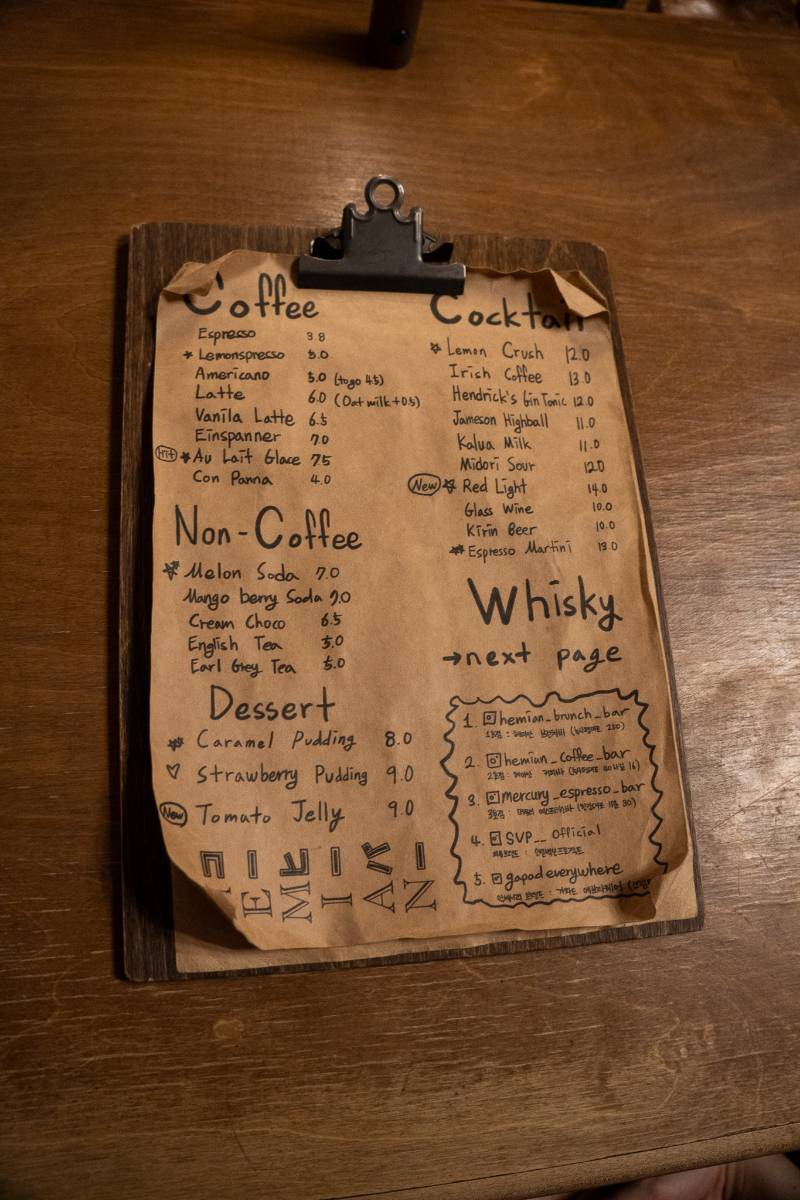 Coffee
Espresso 3.8
★ Lemonspresso 5.0
Americano 5.0 (togo 4.5)
Latte 6.0 (Oat milk +0.5)
Vanila Latte 6.5
Einspanner 7.0
Hit ★ Au Lait Glace 7.5
Con Panna 4.0
Non-Coffee
★ Melon Soda 7.0
Mango berry Soda 7.0
Cream Choco 6.5
English Tea 5.0
Earl Grey Tea 5.0
Dessert
★ Caramel Pudding 8.0
♡ Strawberry Pudding 9.0
New Tomato Jelly 9.0
EMIAN
Cocktail
★ Lemon Crush 12.0
Irish Coffee 13.0
Hendrick's Gin Tonic 12.0
Jameson Highball 11.0
Kalua Milk 11.0
Midori Sour 12.0
New ★ Red Light 14.0
Glass Wine 10.0
Kirin Beer 10.0
★ Espresso Martini 13.0
Whisky
→next page
1. hemian_brunch_bar
2. hemian_coffee_bar
3. mercury_espresso_bar
4. SVP__official
5. gapadeverywhere